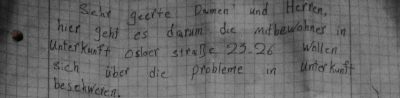 Sehr geerte Damen und Herren,
hier geht es darum die mitbewohner in
Unterkunft osloer straße 23-26 wollen
sich über die probleme in Unterkunft
beschweren.